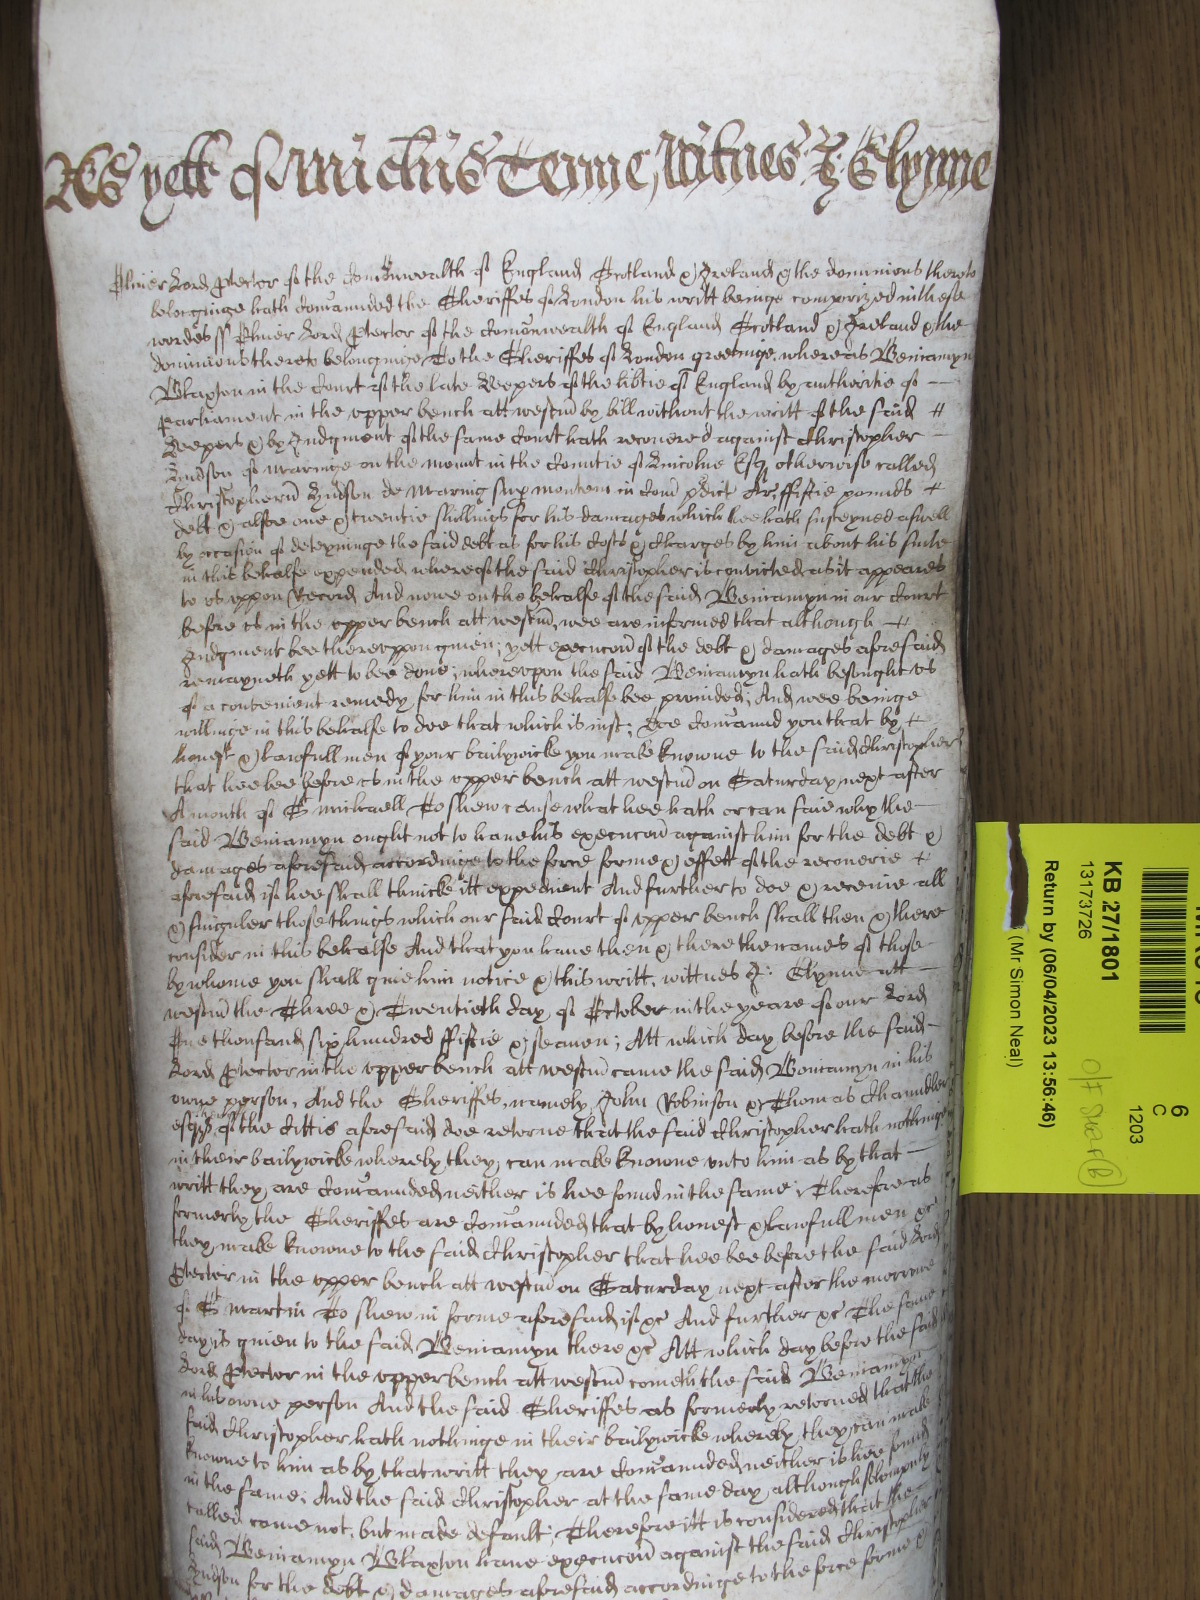 As yett of Michis Terme, Witnes J: Glynne
Oliver Lord Protector of the Comonwealth of England Scotland & Ireland & the dominions thereto
belonginge hath comaunded the Sheriffes of London his writt beinge comprized in these
wordes ss Oliver Lord Protector of the Comonwealth of England Scotland & Ireland & the
dominions thereto belonginge To the Sheriffes of London greetinge, whereas Beniamyn
Blaxton in the Court of the late Keepers of the libtie of England by authoritie of
Parliament in the upper bench att westm by bill without the writt of the said
Keepers & by Judgment of the same Court hath recovered against Christopher
Hudson of Maringe on the mount in the Countie of Lincolne Esq otherwise called
Christopherū Hudson de Maring sup montem in Com pdict Ar, ffiftie pounds
debt & alsoe one & twentie shillings for his damages which hee hath susteyned aswell
by occasion of deteyninge the said debt as for his Costs & Charges by him about his suite
in this behalfe expended whereof the said Christopher is convicted as it appeares
to us uppon Record And nowe on the behalfe of the said Beniamyn in our Court
before us in the upper bench att westm, wee are informed that although
Judgment bee thereuppon given; yett execucon of the debt & damages aforesaid
remayneth yett to bee done; whereupon the said Beniamyn hath besought us
of a convenient remedy for him in this behalfe bee provided; And wee beinge
willinge in this behalfe to doe that which is iust; Doe Comaund you that by
honest & lawfull men of your bailywicke you make knowne to the said Christopher
that hee bee before us in the upper bench att westm on Saturday next after
A month of St Michaell To shew cause what hee hath or can saie why the
said Beniamyn ought not to have his execucon against him for the debt &
damages aforesaid accordinge to the force forme & effect of the recoverie
aforesaid if hee shall thincke itt expedient And further to doe & receive all
& singuler those things which our said Court of upper bench shall then & there
consider in this behalfe And that you have then & there the names of those
by whome you shall give him notice & this writt, wittnes J: Glynne att
westm the Three & Twentieth day of October in the yeare of our Lord
One thousand six hundred ffiftie & seaven; Att which day before the said
Lord Protector in the upper bench att westm came the said Beniamyn in his
owne person, And the Sheriffes, namely, John Robinson & Thomas Chaundler
esqrs, of the Cittie aforesaid doe retorne that the said Christopher hath nothinge
in their bailywicke whereby they can make knowne unto him as by that
writt they are Comaunded neither is hee found in the same; Therefore as
formerly the Sheriffes are Comaunded that by honest & lawfull men &c
they make knowne to the said Christopher that hee bee before the said Lord
Protector in the upper bench att westm on Saturday next after the morrowe
of St Martin To shew in forme aforesaid if &c And further &c The same
day is given to the said Beniamyn there &c Att which day before the said
Lord Protector in the upper bench att westm cometh the said Beniamyn
in his owne person And the said Sheriffes as formerly retorned that the
said Christopher hath nothinge in their bailywicke whereby they can make
knowne to him as by that writt they are Comaunded neither is hee found
in the same; And the said Christopher at the same day although solempnly
called came not, but made default; Therefore itt is considered that the
said Beniamyn Blaxton have execucon against the said Christopher
Hudson for the debt & damages aforesaid accordinge to the force forme &
6
C
1203
KB 27/1801
13173726
Return by (06/04/2023 13:56:46)
(Mr Simon Neal)